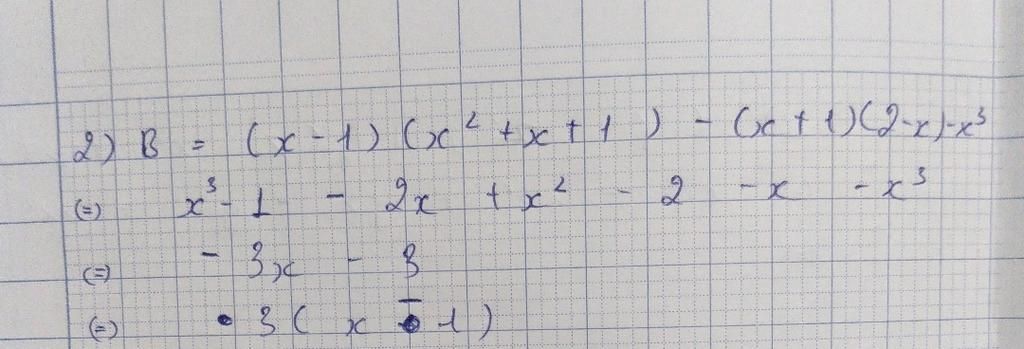 2) B = (x - 1) (x² + x + 1) - (x + 1)(2-x)-x³
(=) x³ - 1 - 2x + x² - 2 - x - x³
(=) - 3x - 3
(=) • 3 ( x - 1)